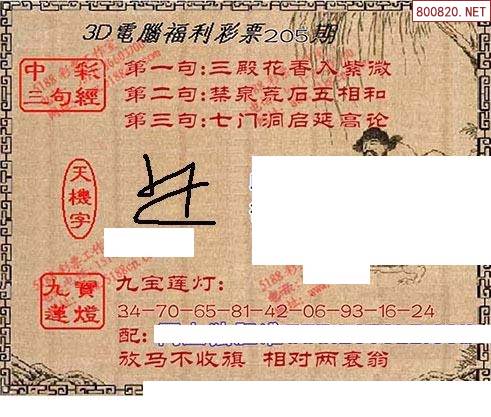 800820.NET
3D電腦福利彩票205期
中彩
三句經
第一句:三殿花香入紫微
第二句:禁泉荒石五相和
第三句:七门洞启延高论
天機字
九寶
蓮燈
九宝莲灯:
34-70-65-81-42-06-93-16-24
配:
放马不收旗 相对两衰翁